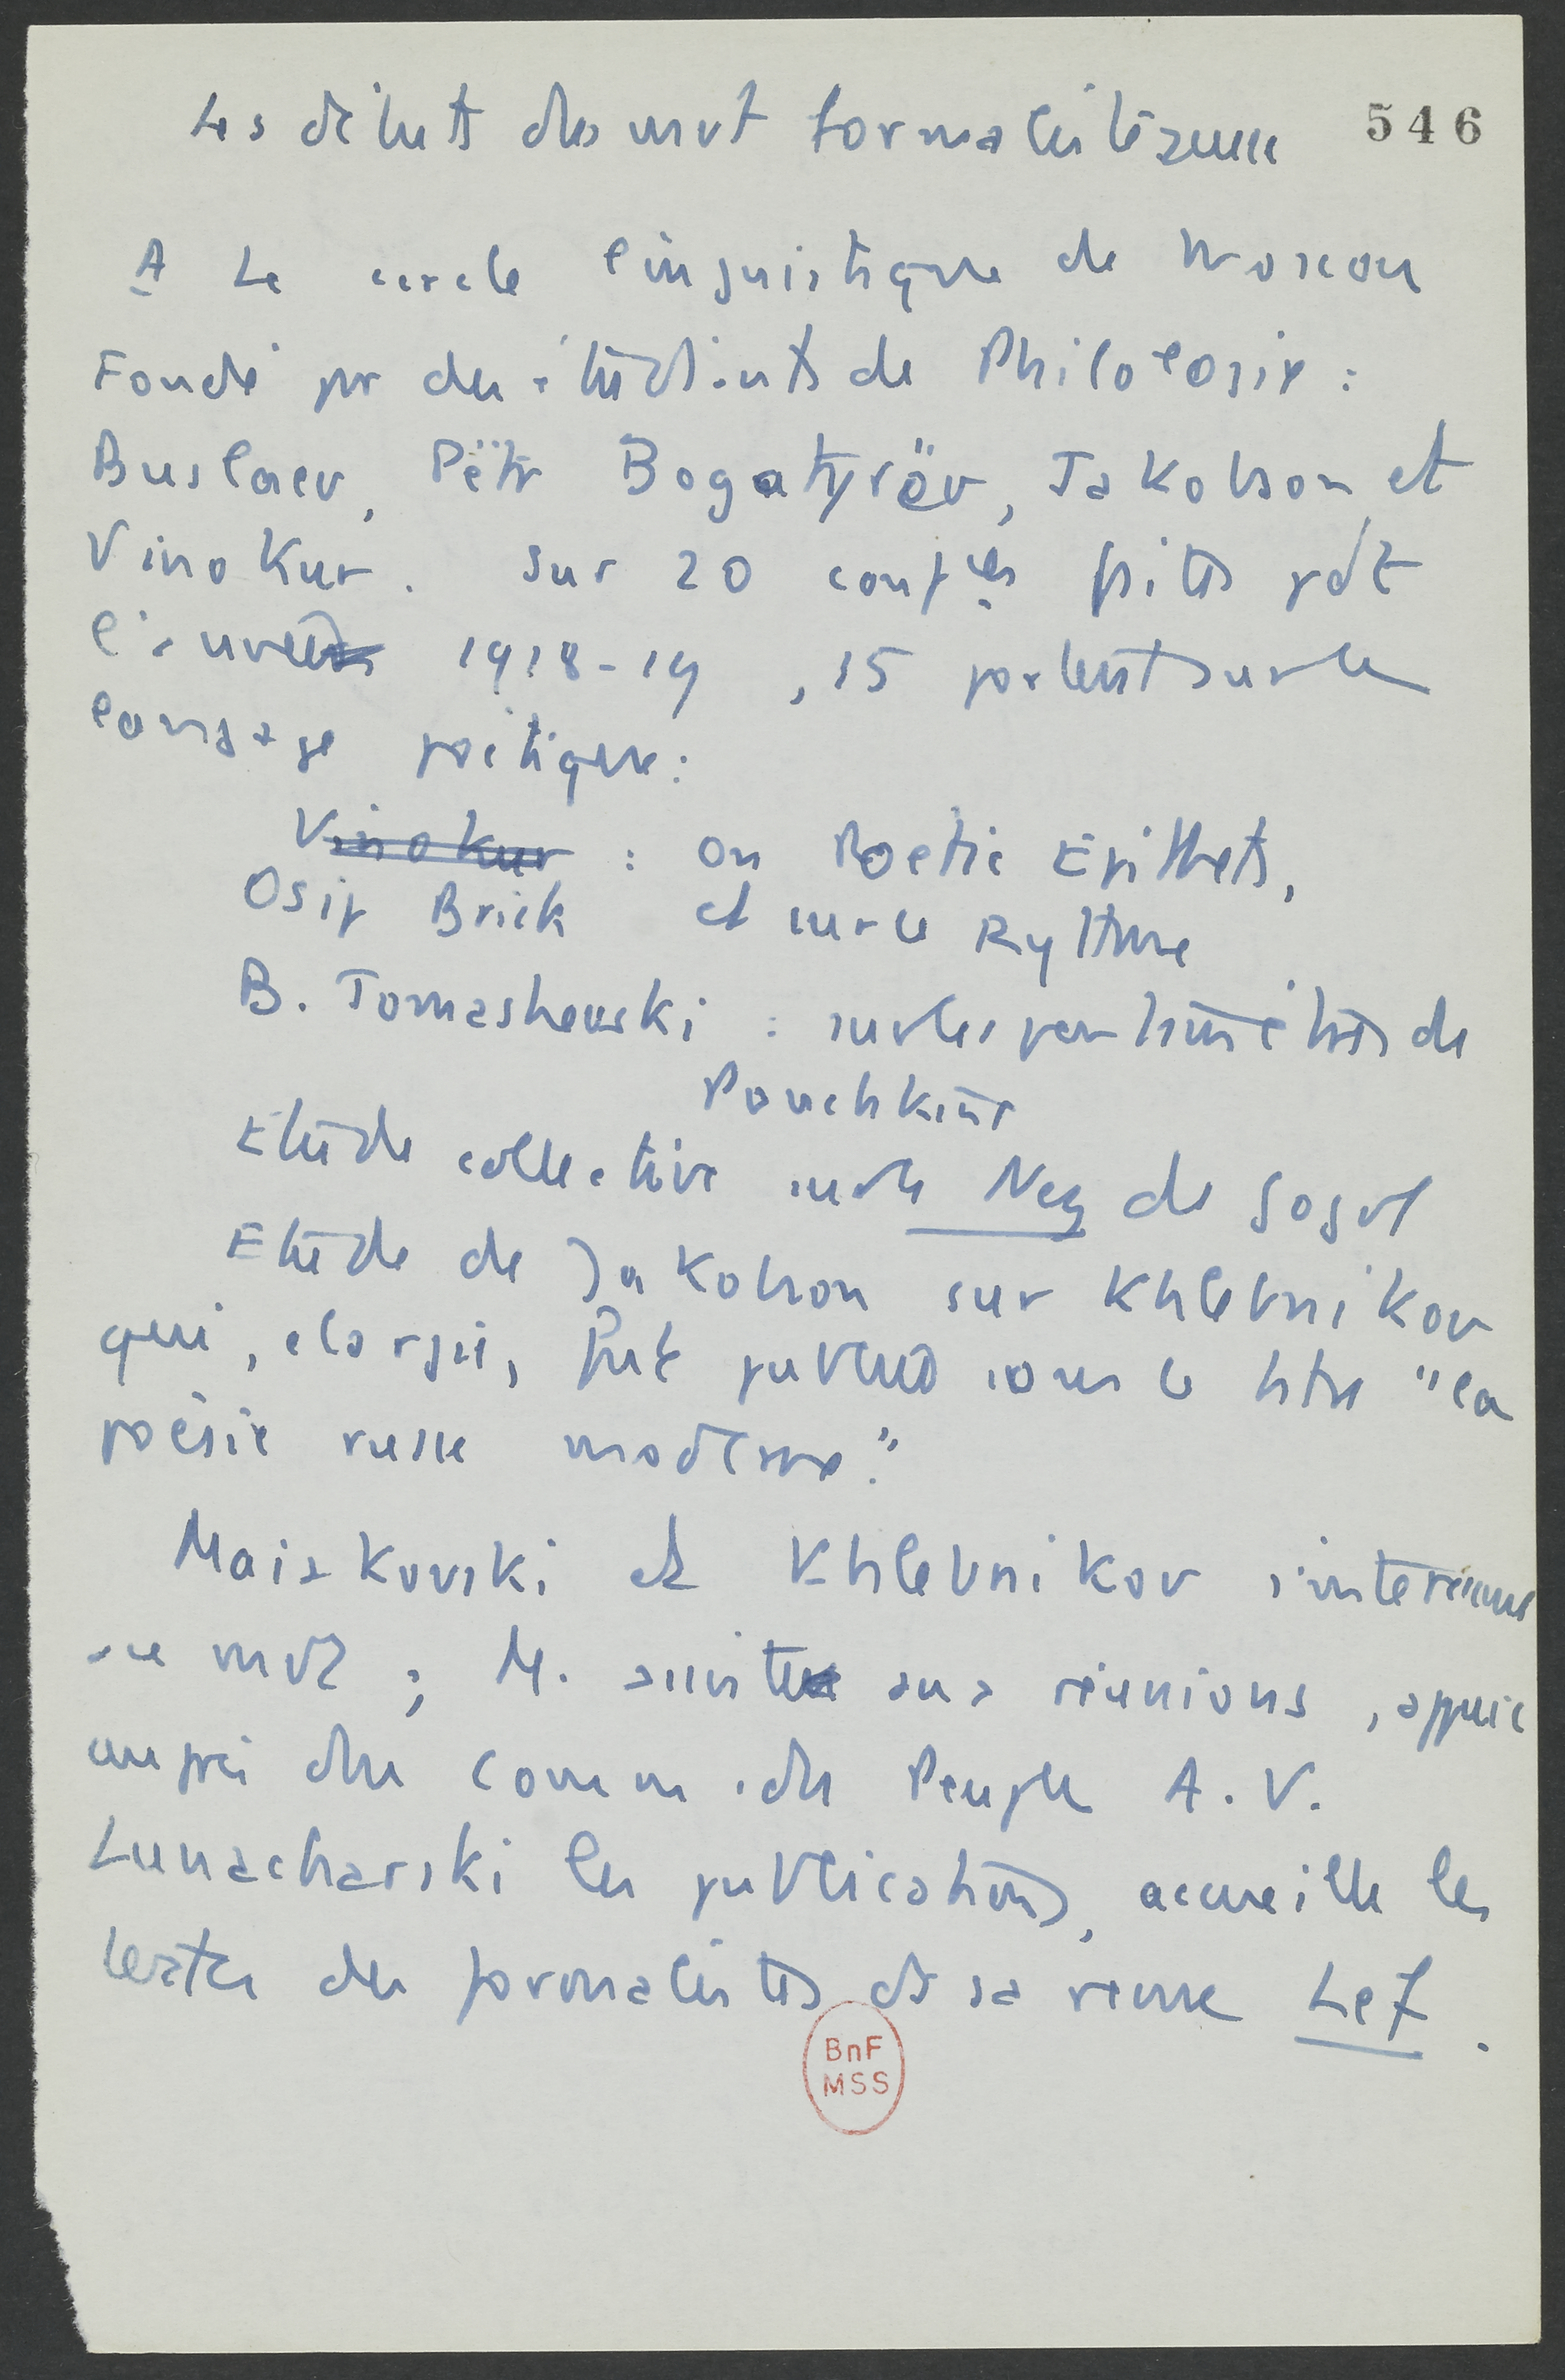 546
Les débuts des mvt formalistes russe
A Le cercle linguistique de Moscou
Fondé par des étudiants de Philologie :
Buslaev, Pëtr Bogatyrëv, Jakobson et
Vinokur. Sur 20 conf<sup>ces</sup> faites pdt
l'année 1918-19, 15 portent sur le
langage poétique :
Vinokur : On Poetic Epithets,
Osip Brick et sur le Rythme
B. Tomashevski : sur les pentamètres de
Pouchkine
Etude collective sur le Nez de Gogol
Etude de Jakobson sur Khlebnikov
qui, élargie, fut publiée sous le titre "la
poésie russe moderne".
Maiakovski et Khlebnikov s'intéressent
ce mvt ; M. assiste aux réunions, appuie
auprès du Comm. du Peuple A. V.
Lunacharski les publications, accueille les
textes des formalistes ds sa revue Lef.
BnF
MSS